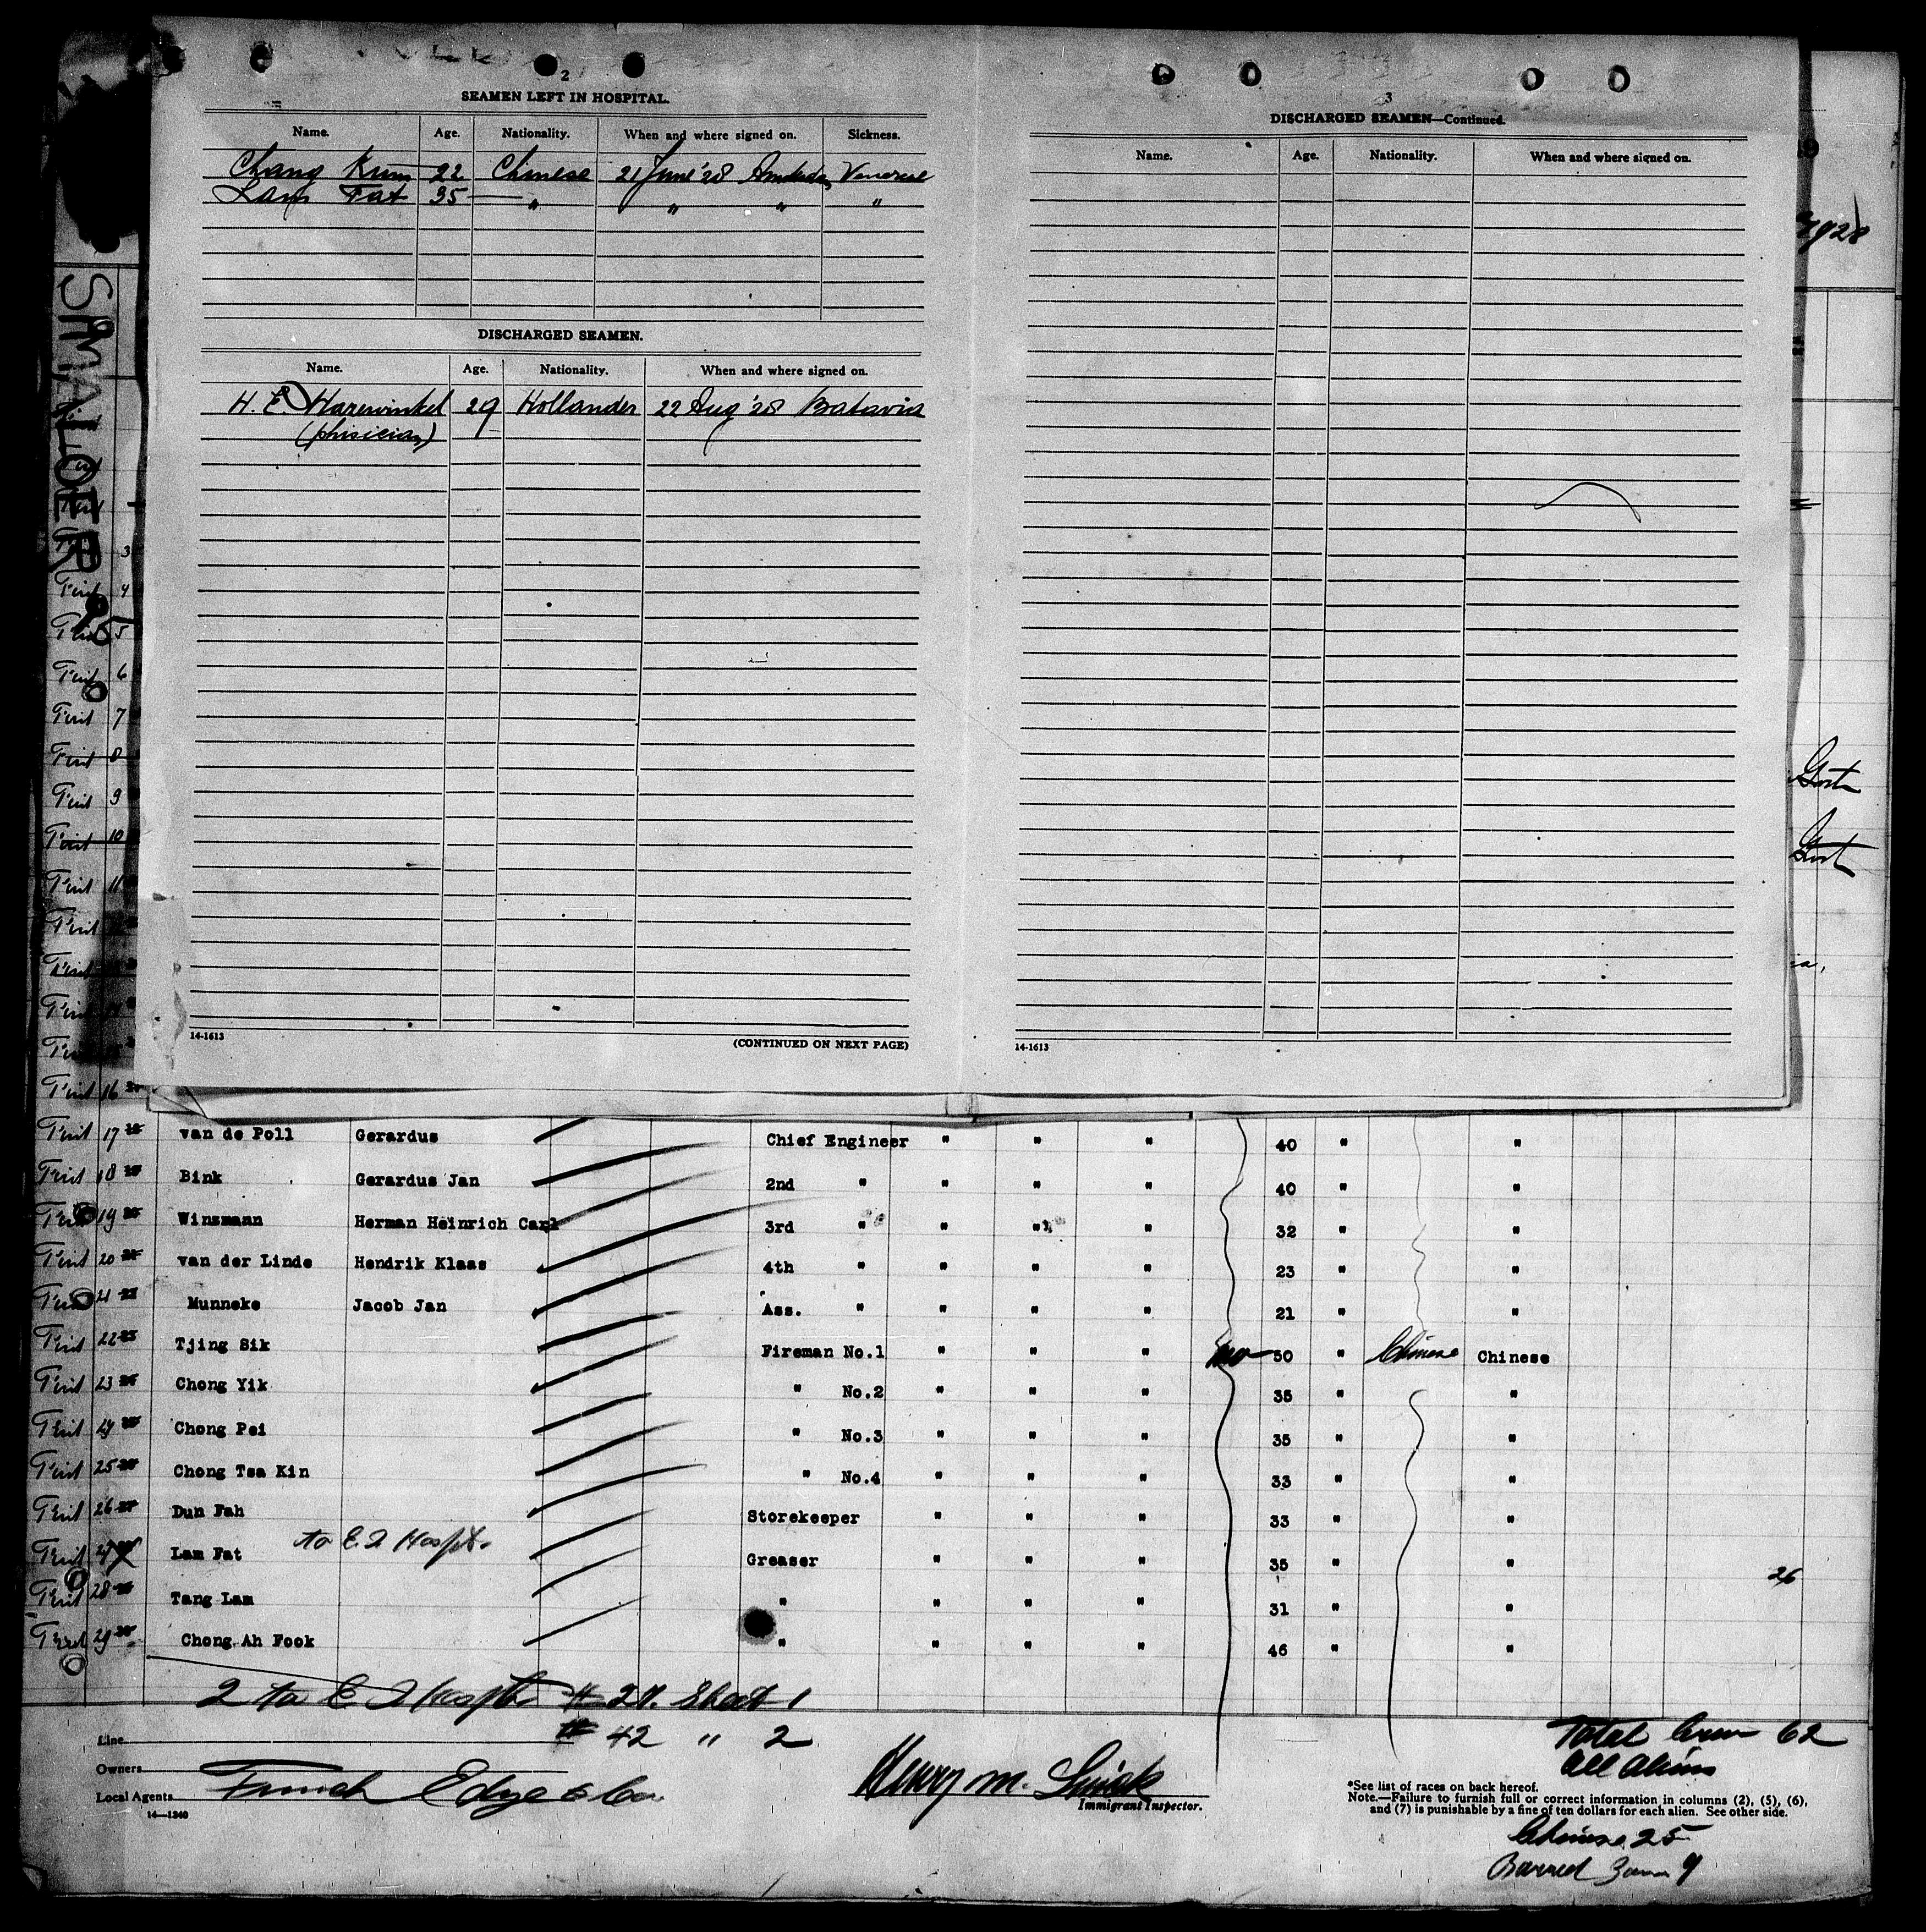 2
SEAMEN LEFT IN HOSPITAL.
Name. Age. Nationality. When and where signed on. Sickness.
Chang Kum 22 Chinese 21 June '28 Amsterdam Venereal
Lam Fat 35 " " " "
DISCHARGED SEAMEN.
Name. Age. Nationality. When and where signed on.
H. E. Harewinkel 29 Hollander 22 Aug '28 Batavia
(phisician)
14-1613
(CONTINUED ON NEXT PAGE)
3
DISCHARGED SEAMEN—Continued.
Name. Age. Nationality. When and where signed on.
14-1613
1928
SIMALOER
3
4
5
6
7
8
9
10
11
16
17 van de Poll Gerardus Chief Engineer " " " 40 " "
18 Bink Gerardus Jan 2nd " " " " 40 " "
19 Winzmann Herman Heinrich Carl 3rd " " " " 32 " "
20 van der Linde Hendrik Klaas 4th " " " " 23 " "
21 Munneke Jacob Jan Ass. " " " " 21 " "
22 Tjing Sik Fireman No.1 " " " 50 " Chinese Chinese
23 Chong Yik " No.2 " " " 35 " "
24 Chong Pei " No.3 " " " 35 " "
25 Chong Tsa Kin " No.4 " " " 33 " "
26 Dun Fah Storekeeper " " " 33 " "
27 Lam Fat to E. I Hospt. Greaser " " " 35 " "
26
28 Tang Lam " " " " 31 " "
29 Chong Ah Fook " " " " 46 " "
2 to E I Hospt. # 27. Sheet 1
# 42 " 2
Line
Owners
Local Agents Funch Edye & Co.
14—1240
Henry M.
Immigrant Inspector.
Total Crew 62
All Aliens
*See list of races on back hereof.
Note.—Failure to furnish full or correct information in columns (2), (5), (6),
and (7) is punishable by a fine of ten dollars for each alien. See other side.
Chinese 25
Barred Zone 9